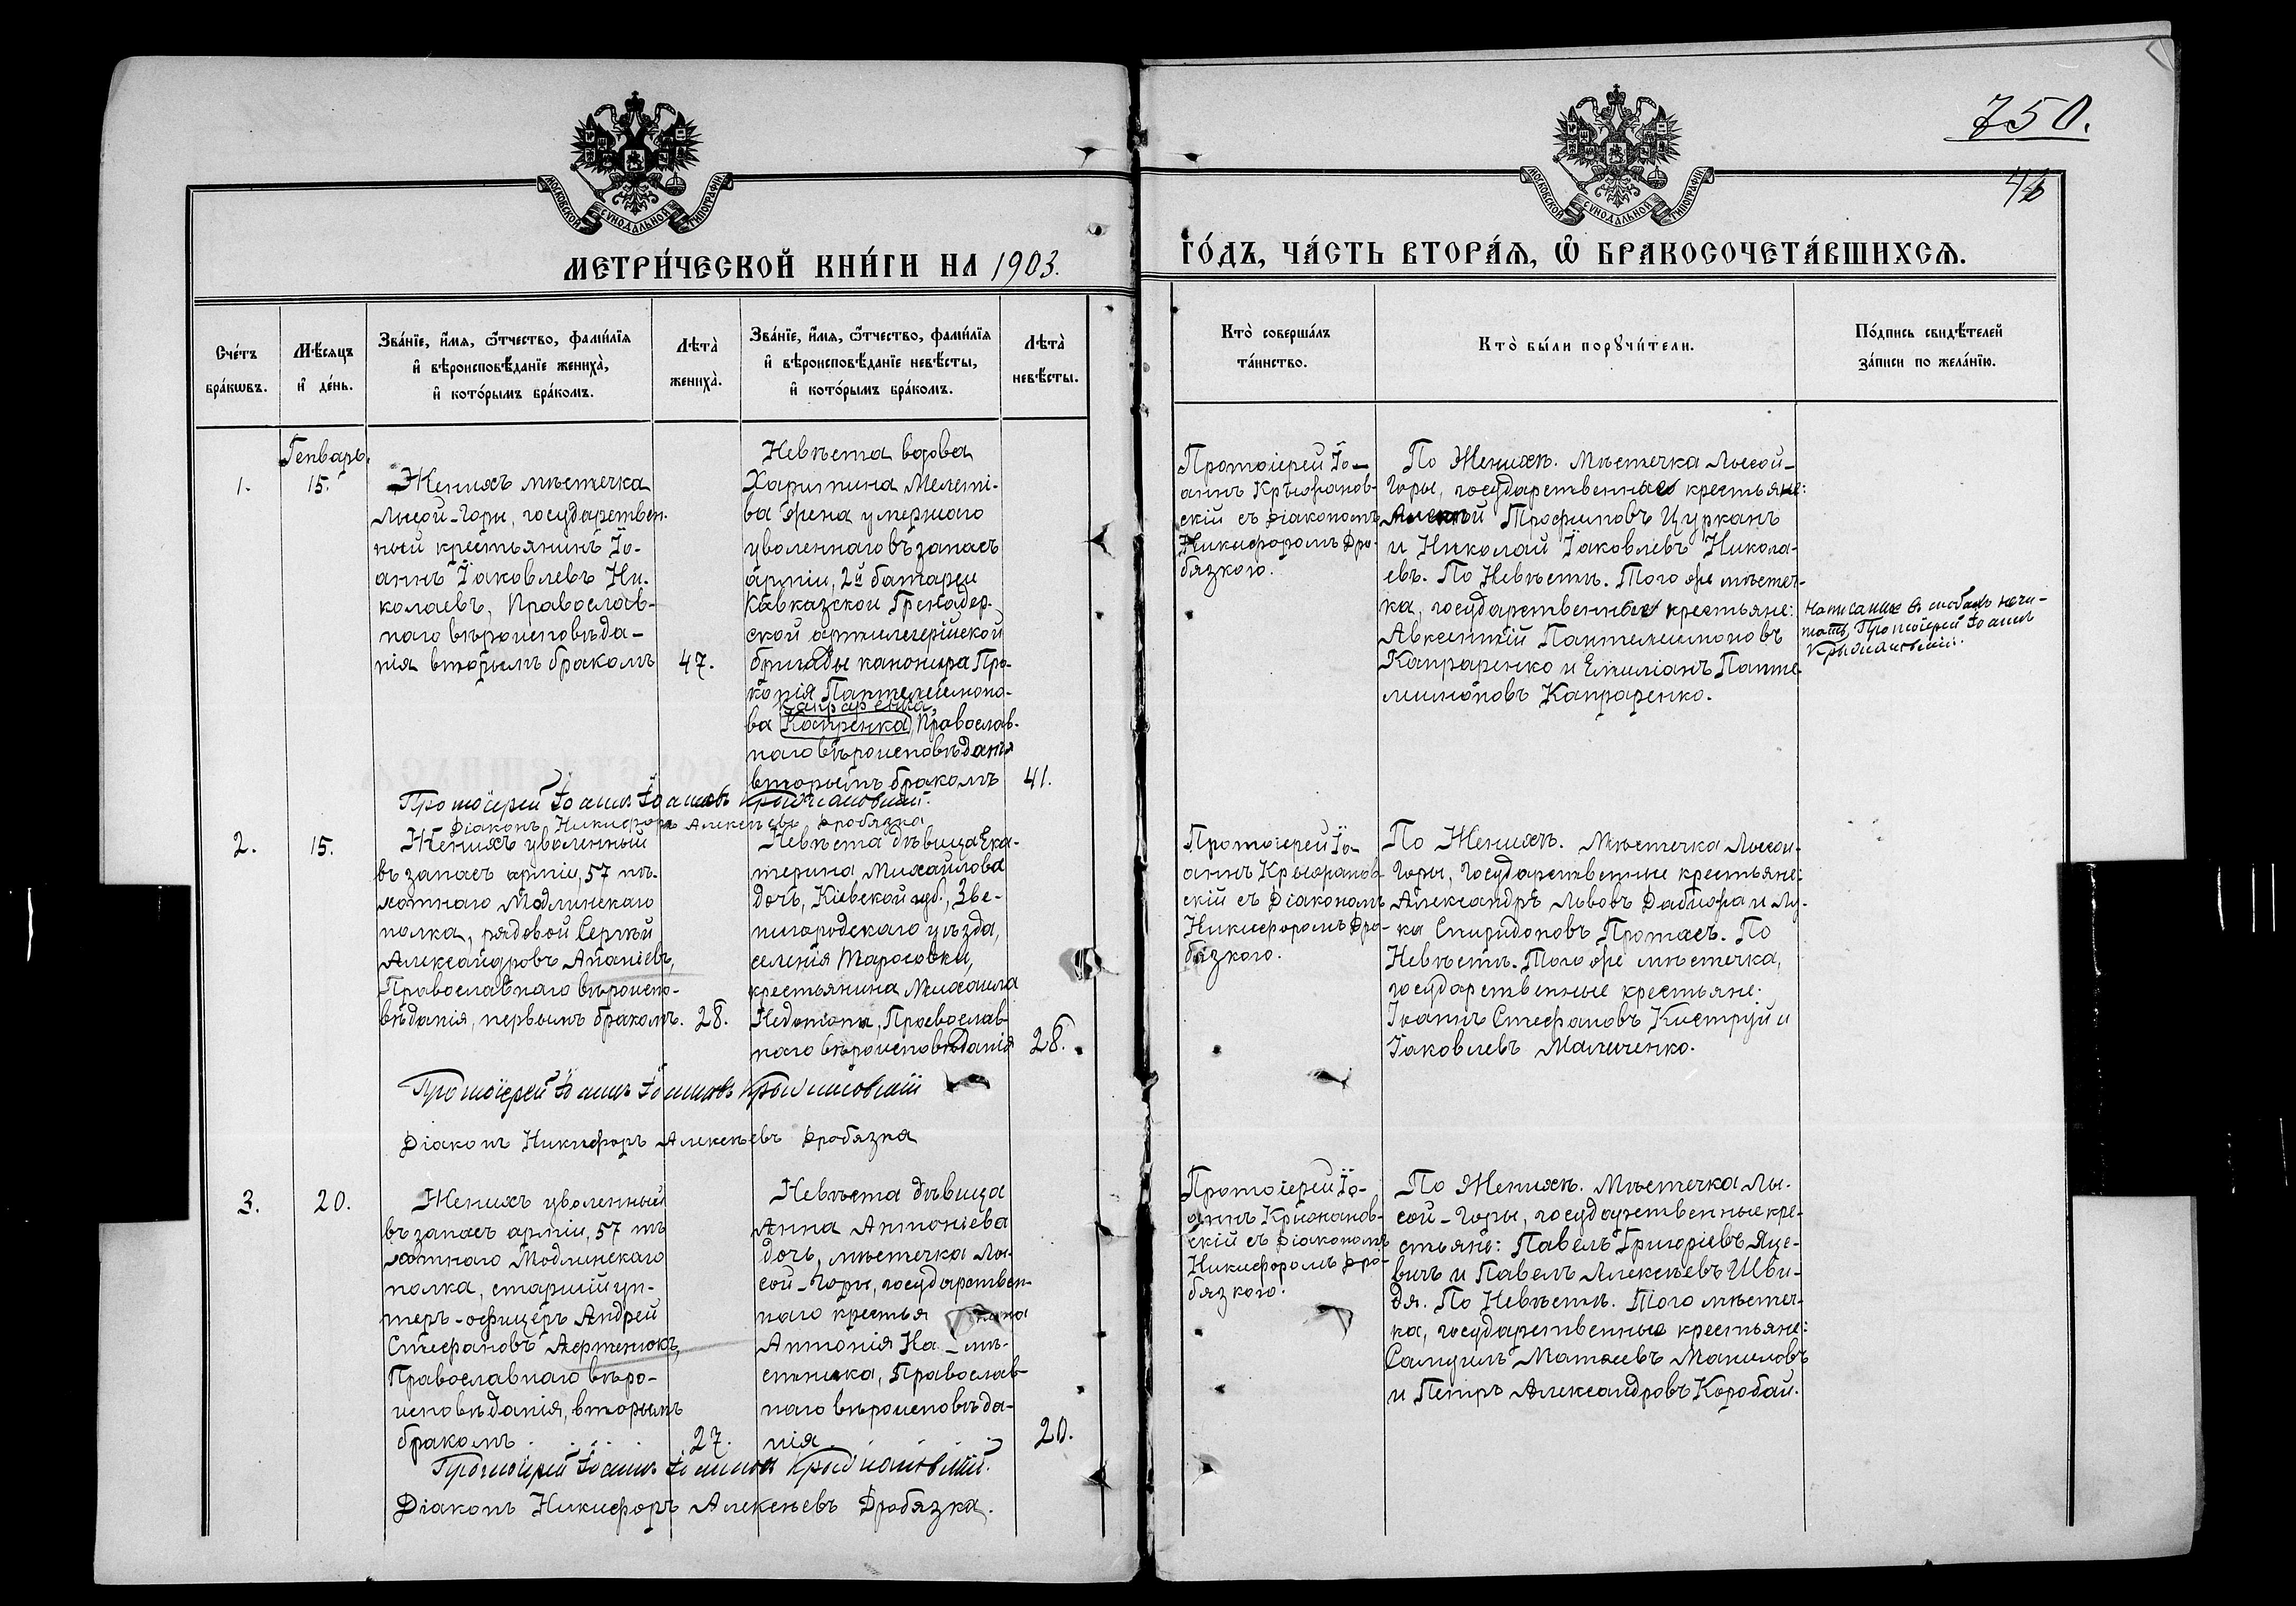 750.
46
МОСКОВСКОЙ СѴНОДАЛЬНОЙ ТИПОГРАФІИ
МОСКОВСКОЙ СѴНОДАЛЬНОЙ ТИПОГРАФІИ
МЕТРИ́ЧЕСКОЙ КНИ́ГИ НА 1903.
ГО́ДЪ, ЧА́СТЬ ВТОРА́Ѧ, Ѡ҆ БРАКОСОЧЕТА́ВШИХСѦ.
Сче́тъ
бра́кѡвъ.
Мѣ́сѧцъ
и҆ де́нь.
Зва́нїе, и҆́мѧ, ѻ҆́тчество, фами́лїѧ
и҆ вѣроисповѣ́данїе жениха̀,
и҆ кото́рымъ бра́комъ.
Лѣта̀
жениха̀.
Зва́нїе, и҆́мѧ, ѻ҆́тчество, фами́лїѧ
и҆ вѣроисповѣ́данїе невѣ́сты,
и҆ кото́рымъ бра́комъ.
Лѣта̀
невѣ́сты.
Кто̀ соверша́лъ
та́инство.
Кто̀ бы́ли порꙋчи́тели.
По́дпись свидѣ́телей
за́писи по жела́нїю.
1.
Генварь.
15.
Женихъ мѣстечка
Лысой-Горы, государствен-
ный крестьянинъ Іо-
аннъ Іаковлевъ Ни-
колаевъ, Православ-
наго вѣроисповѣда-
нія вторымъ бракомъ
47.
Невѣста вдова
Харитина Мелеті-
ва жена умершаго
уволеннаго въ запасъ
арміи, 2й батареи
Кавказской Гренадер-
ской артилерійской
бригады канонира Про-
копія Пантелеимоно-
Капраренка,
ва Капренка, Православ-
наго вѣроисповѣданія
вторымъ бракомъ
41.
Протоіерей Іо-
аннъ Крыжанов-
скій съ діакономъ
Никифоромъ Дро-
бязкою.
По Женихѣ. Мѣстечка Лысой-
Горы, государственные крестьяне:
Трофимовъ Цурканъ
и Николай Іаковлевъ Никола-
евъ. По Невѣстѣ. Того же мѣстеч-
ка, государственные крестьяне:
Авксентій Пантелеимоновъ
Капраренко и Емиліанъ Панте-
леимоновъ Капраренко.
Написанное въ скобахъ не чи-
тать Протоіерей Іоаннъ
Крыжановскій.
Протоіерей Іоаннъ Іоанновъ Крыжановскій.
Діаконъ Никифоръ Алексѣевъ Дробязка
2.
15.
Женихъ уволенный
въ запасъ арміи, 57 пѣ-
хотнаго Модлинскаго
полка, рядовой Сергѣй
Александровъ Ананіевъ,
Православнаго вѣроиспо-
вѣданія, первымъ бракомъ.
28.
Невѣста дѣвица Ека-
терина Михаилова
дочь, Кіевской губ., Зве-
нигородскаго уѣзда,
селенія Тарасовки,
крестьянина Михаила
Православ-
наго вѣроисповѣданія
28.
Протоіерей Іо-
аннъ Крыжанов-
скій съ Діакономъ
Никифоромъ Дро-
бязкою.
По Женихѣ. Мѣстечка Лысой-
Горы, Государственные крестьяне:
Александръ Львовъ Дабижа и Лу-
ка Спиридоновъ Протасъ. По
Невѣстѣ. Того же мѣстечка,
государственные крестьяне:
Іоаннъ Стефановъ Киструй и
Іаковлевъ Маличенко.
Протоіерей Іоаннъ Іоанновъ Крыжановскій
Діаконъ Никифоръ Алексѣевъ Дробязка
3.
20.
Женихъ уволенный
въ запасъ арміи, 57 пѣ
хотнаго Модлинскаго
полка, старшій ун-
теръ-офицеръ Андрей
Стефановъ Афтенюкъ,
Православнаго вѣро-
исповѣданія, вторымъ
бракомъ
27.
Невѣста дѣвица
Анна Антоніева
дочь, мѣстечка Лы-
сой-Горы, государствен-
наго крестьянина
Антонія На-мѣ-
стника, Православ-
наго вѣроисповѣда-
нія.
20.
Протоіерей Іо-
аннъ Крижанов-
скій съ діакономъ
Никифоромъ Дро-
бязкою.
По Женихѣ. Мѣстечка Лы-
сой-Горы, государственные кре-
стьяне: Павелъ Григоріевъ Яце-
вичъ и Павелъ Алексѣевъ Шви-
дя. По Невѣстѣ. Того мѣстеч-
ка, государственные крестьяне:
Самуилъ Матѳеевъ Маниловъ
и Петръ Александровъ Коробай.
Протоіерей Іоаннъ Іоанновъ Крыжановскій.
Діаконъ Никифоръ Алексѣевъ Дробязка.